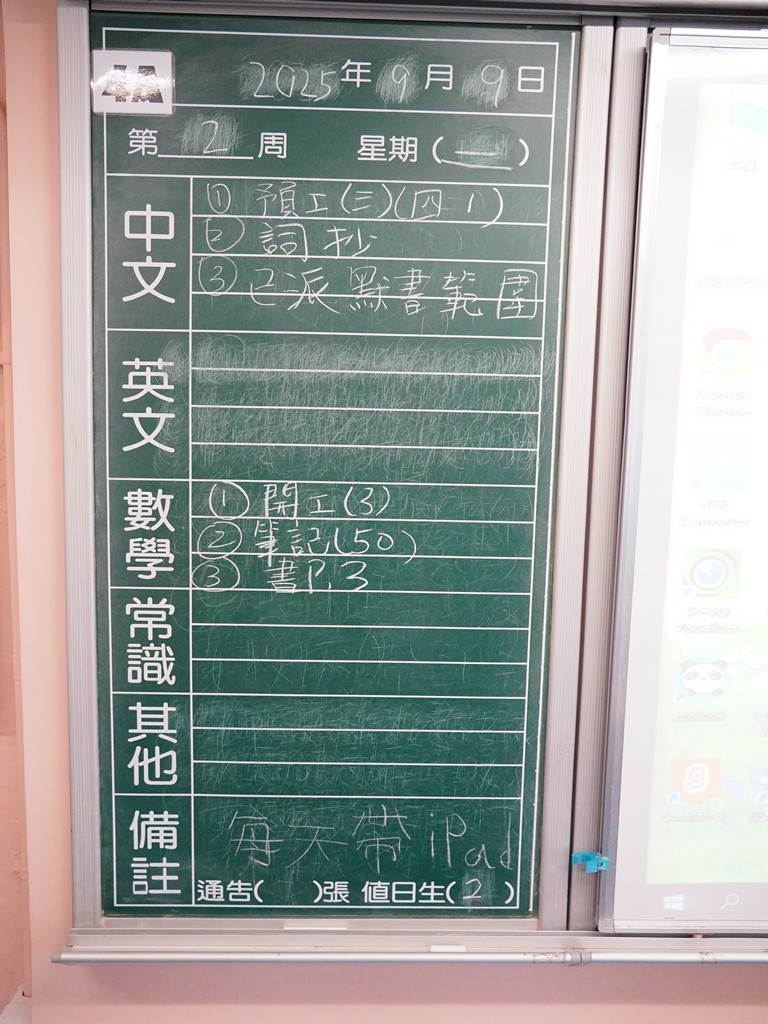 4A
2025年9月9日
第2周 星期(二)
中文
① 預工(三)(四 1)
② 詞抄
③ 已派默書範圍
英文
數學
① 開工(3)
② 筆記(50)
③ 書P.3
常識
其他
備註
每天帶iPad
通告( )張 值日生(2)
Google
Chrome